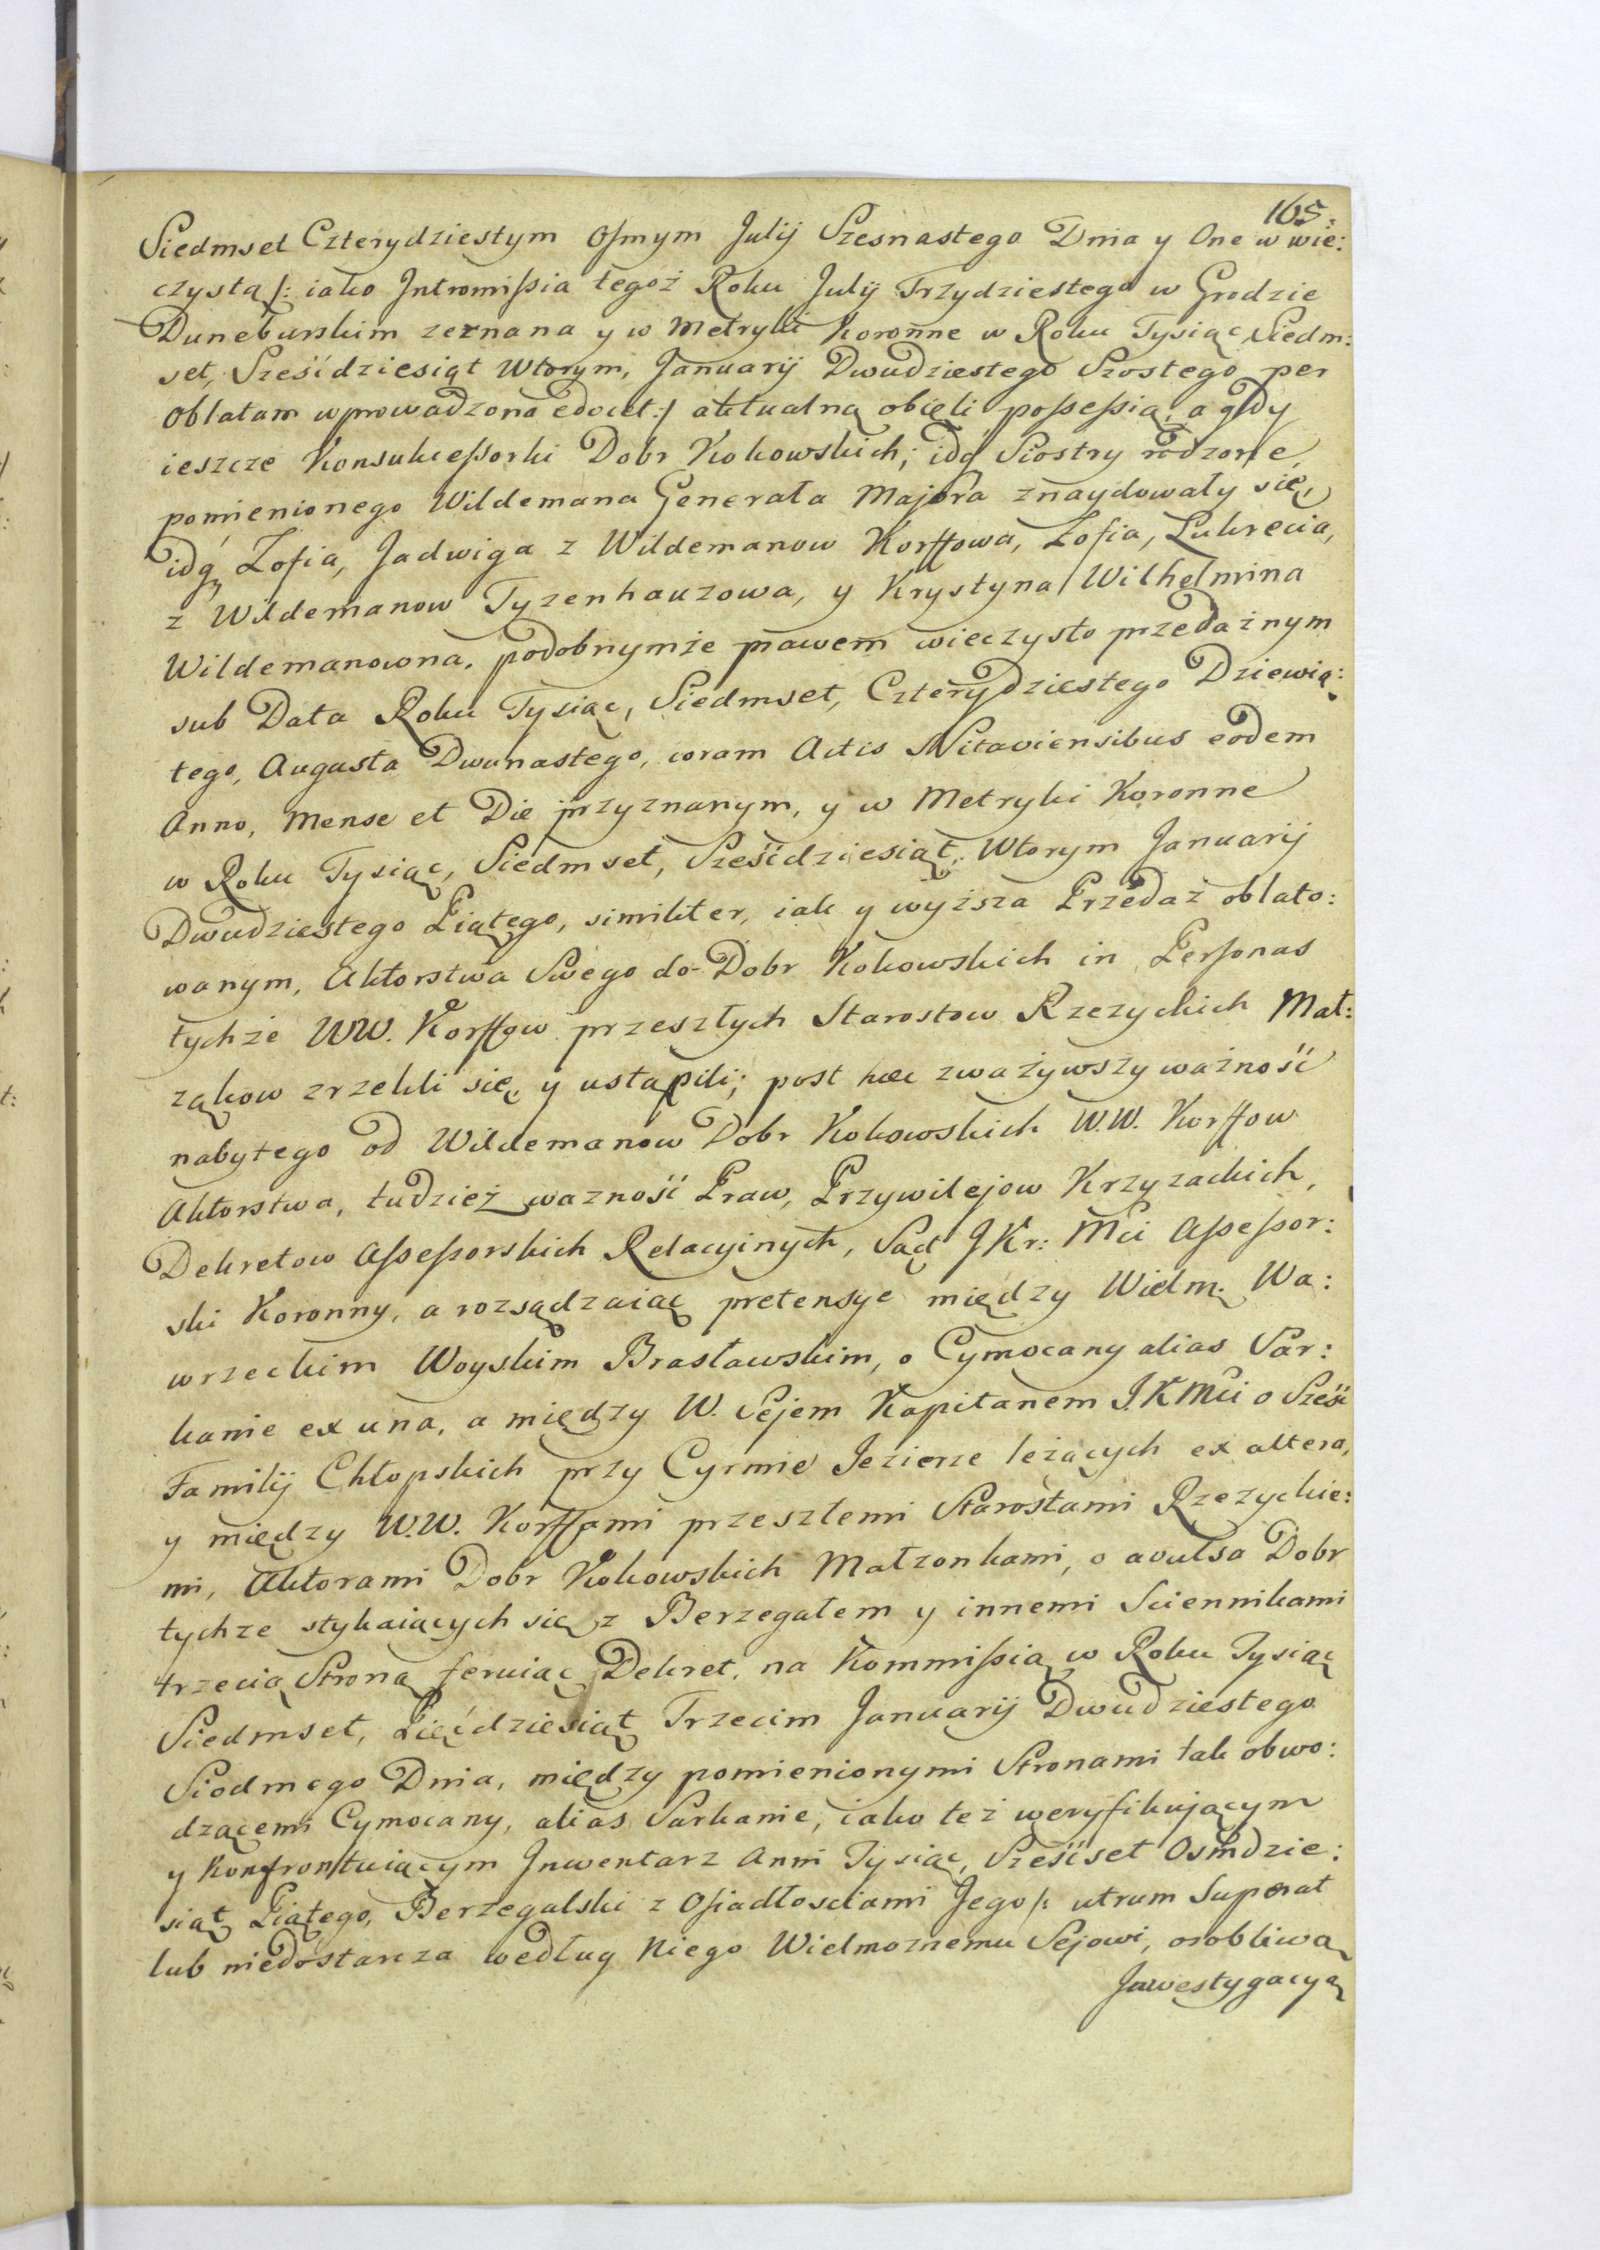 165.
Siedmset Czterydziestym osmym Julij Szesnastego Dnia y One w wie:
czystą /: iako Intromissia tegoż Roku Julij Trzydziestego w Grodzie
Duneburskim zeznana y w Metryki Koronne w Roku Tysiąc, Siedm:
set, Sześćdziesiąt Wtorym, Januarij Dwudziestego Szostego per
oblatam wprowadzona edocet:/ aktualną obięli possessią, a gdy
ieszcze Konsukcessorki Dobr Kokowskich; idq Siostry rodzone,
pomienionego Wildemana Generała Majora znaydowały się,
idq Zofia, Jadwiga z Wildemanow Korffowa, Zofia, Lukrecia,
z Wildemanow Tyzenhauzowa, y Krystyna Wilhelmina
Wildemanowna. podobnymże prawem wieczysto przedażnym
sub Data Roku Tysiąc, Siedmset, Czterydziestego Dziewią:
tego, Augusta Dwunastego, coram Actis Mitaviensibus eodem
Anno, Mense et Die przyznanym, y w Metryki Koronne
w Roku Tysiąc, Siedmset, Sześćdziesiąt, Wtorym Januarij
Dwudziestego Piątego, similiter, iak y wyższa Przedaż oblato:
wanym, Aktorstwa Swego do Dobr Kokowskich in Personas
tychże WW. Korffow przeszłych Starostow Rzezyckich Mał:
żąkow zrzekli się y ustąpili; post hæc zważywszy ważność
nabytego od Wildemanow Dobr Kokowskich W.W. Korffow
Aktorstwa, tudzież wazność Praw, Przywilejow Krzyzackich,
Dekretow Assessorskich Relacyinych, Sąd JKr: Mci Assessor:
ski Koronny, a rozsądzaiąc pretensye między Wielm. Wa:
wrzeckim Woyskim Brasławskim, o Cymocany alias Sar:
kanie ex una, a między W. Sejem Kapitanem J.K Mci o Sześć
Familij Chłopskich przy Cyrmie Jezierze leżących ex altera,
y między W.W. Korffami przeszłemi Starostami Rzezyckie:
mi, Aktorami Dobr Kokowskich Małzonkami, o avulsa Dobr
tychze stykaiących się z Berzegałem y innemi Sciennikami
trzecią Stroną feruiąc Dekret, na Kommissią w Roku Tysiąc
Siedmset, Pięćdziesiąt Trzecim Januarij Dwudziestego
Siodmego Dnia, między pomienionymi Stronami tak obwo:
dzącemi Cymocany, alias Sarkanie, iako też weryfikującym
y Konfrontuiącym Inwentarz Anni Tysiąc, Sześćset Osmdzie:
siąt Piątego, Berzegalski z Osiadłosciami Jego /: utrum Superat
lub niedostarcza według Niego Wielmoznemu Sejowi, osobliwą
Inwestygacyą